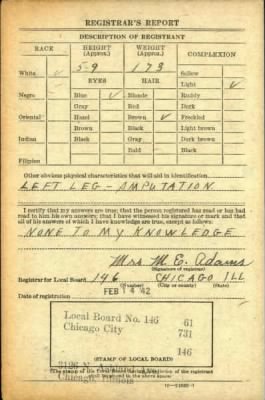 REGISTRAR'S REPORT
DESCRIPTION OF REGISTRANT
RACE HEIGHT (Approx.) WEIGHT (Approx.) COMPLEXION
White ✓ 5-9 173 Sallow
EYES HAIR Light ✓
Negro Blue ✓ Blonde Ruddy
Gray Red Dark
Oriental Hazel Brown ✓ Freckled
Brown Black Light brown
Indian Black Gray Dark brown
Bald Black
Filipino
Other obvious physical characteristics that will aid in identification
LEFT LEG - AMPUTATION
I certify that my answers are true; that the person registered has read or has had
read to him his own answers; that I have witnessed his signature or mark and that
all of his answers of which I have knowledge are true, except as follows:
NONE TO MY KNOWLEDGE
Mrs. M. E. Adams
(Signature of registrar)
Registrar for Local Board 146 CHICAGO ILL
(Number) (City or county) (State)
Date of registration FEB 14 '42
Local Board No. 146 61
Chicago City 731
146
3126 N.
Chicago, Illinois
(STAMP OF LOCAL BOARD)
of the registrant
shall be in the above space)